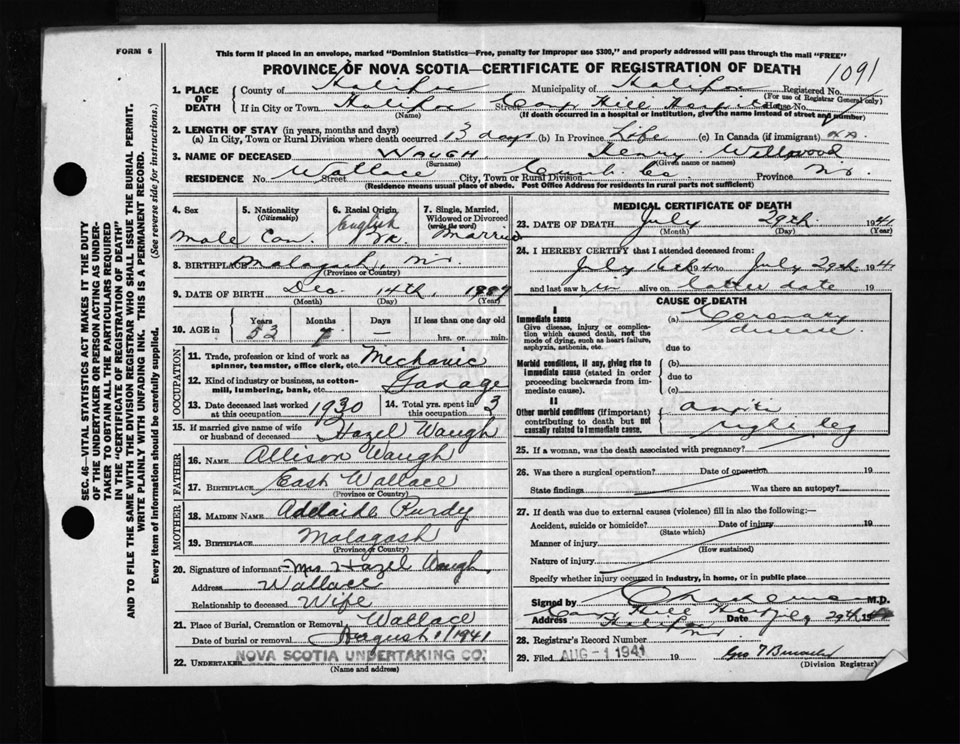 FORM 6
This form if placed in an envelope, marked "Dominion Statistics—Free, penalty for improper use $300," and properly addressed will pass through the mail "FREE"
PROVINCE OF NOVA SCOTIA—CERTIFICATE OF REGISTRATION OF DEATH
1091
1. PLACE OF DEATH
County of Halifax Municipality of Halifax Registered No.
(For use of Registrar General only)
If in City or Town Halifax Street Camp Hill Hospital House No.
(Name) (If death occurred in a hospital or institution, give the name instead of street and number)
2. LENGTH OF STAY (in years, months and days)
(a) In City, Town or Rural Division where death occurred 13 days (b) In Province Life (c) In Canada (if immigrant)
3. NAME OF DECEASED WAUGH, Henry
(Surname) (Given name or names)
RESIDENCE No. Wallace Street City, Town or Rural Division Cumb. Co. Province N.S.
(Residence means usual place of abode. Post Office Address for residents in rural parts not sufficient)
4. Sex
Male
5. Nationality
(Citizenship)
Can.
6. Racial Origin
English
7. Single, Married, Widowed or Divorced
(write the word)
Married
8. BIRTHPLACE Malagash, N.S.
(Province or Country)
9. DATE OF BIRTH Dec. 14th,
(Month) (Day) (Year)
10. AGE in
Years Months Days If less than one day old
53 7 hrs. or min.
OCCUPATION
11. Trade, profession or kind of work as spinner, teamster, office clerk, etc. Mechanic
12. Kind of industry or business, as cotton-mill, lumbering, bank, etc. Garage
13. Date deceased last worked at this occupation 1930
14. Total yrs. spent in this occupation 3
15. If married give name of wife or husband of deceased Hazel Waugh
FATHER
16. NAME Allison Waugh
17. BIRTHPLACE East Wallace
(Province or Country)
MOTHER
18. MAIDEN NAME Adelaide Purdy
19. BIRTHPLACE Malagash
(Province or Country)
20. Signature of informant Mrs. Hazel Waugh
Address Wallace
Relationship to deceased Wife
21. Place of Burial, Cremation or Removal Wallace
Date of burial or removal August 1/1941
22. UNDERTAKER NOVA SCOTIA UNDERTAKING CO.
(Name and address)
MEDICAL CERTIFICATE OF DEATH
23. DATE OF DEATH July 29th. 1941
(Month) (Day) (Year)
24. I HEREBY CERTIFY that I attended deceased from:
July 16th 1941 to July 29th 194
and last saw h im alive on latter date 19
CAUSE OF DEATH
I
Immediate cause
Give disease, injury or complication which caused death, not the mode of dying, such as heart failure, asphyxia, asthenia, etc.
(a) Coronary
disease
due to
Morbid conditions, if any, giving rise to immediate cause (stated in order proceeding backwards from immediate cause).
(b)
due to
(c)
II
Other morbid conditions (if important) contributing to death but not causally related to immediate cause.
right leg
25. If a woman, was the death associated with pregnancy?
26. Was there a surgical operation? Date of operation 19
State findings Was there an autopsy?
27. If death was due to external causes (violence) fill in also the following:—
Accident, suicide or homicide? Date of injury 19
(State which)
Manner of injury
(How sustained)
Nature of injury
Specify whether injury occurred in industry, in home, or in public place
Signed by M.D.
Address Camp Hill Hosp. Date July 29th 19
Halifax NS
28. Registrar's Record Number
29. Filed AUG - 1 1941 19
(Division Registrar)
SEC. 46—VITAL STATISTICS ACT MAKES IT THE DUTY
OF THE UNDERTAKER OR PERSON ACTING AS UNDER-
TAKER TO OBTAIN ALL THE PARTICULARS REQUIRED
IN THE "CERTIFICATE OF REGISTRATION OF DEATH"
AND TO FILE THE SAME WITH THE DIVISION REGISTRAR WHO SHALL ISSUE THE BURIAL PERMIT.
WRITE PLAINLY WITH UNFADING INK. THIS IS A PERMANENT RECORD.
Every item of information should be carefully supplied. (See reverse side for instructions.)